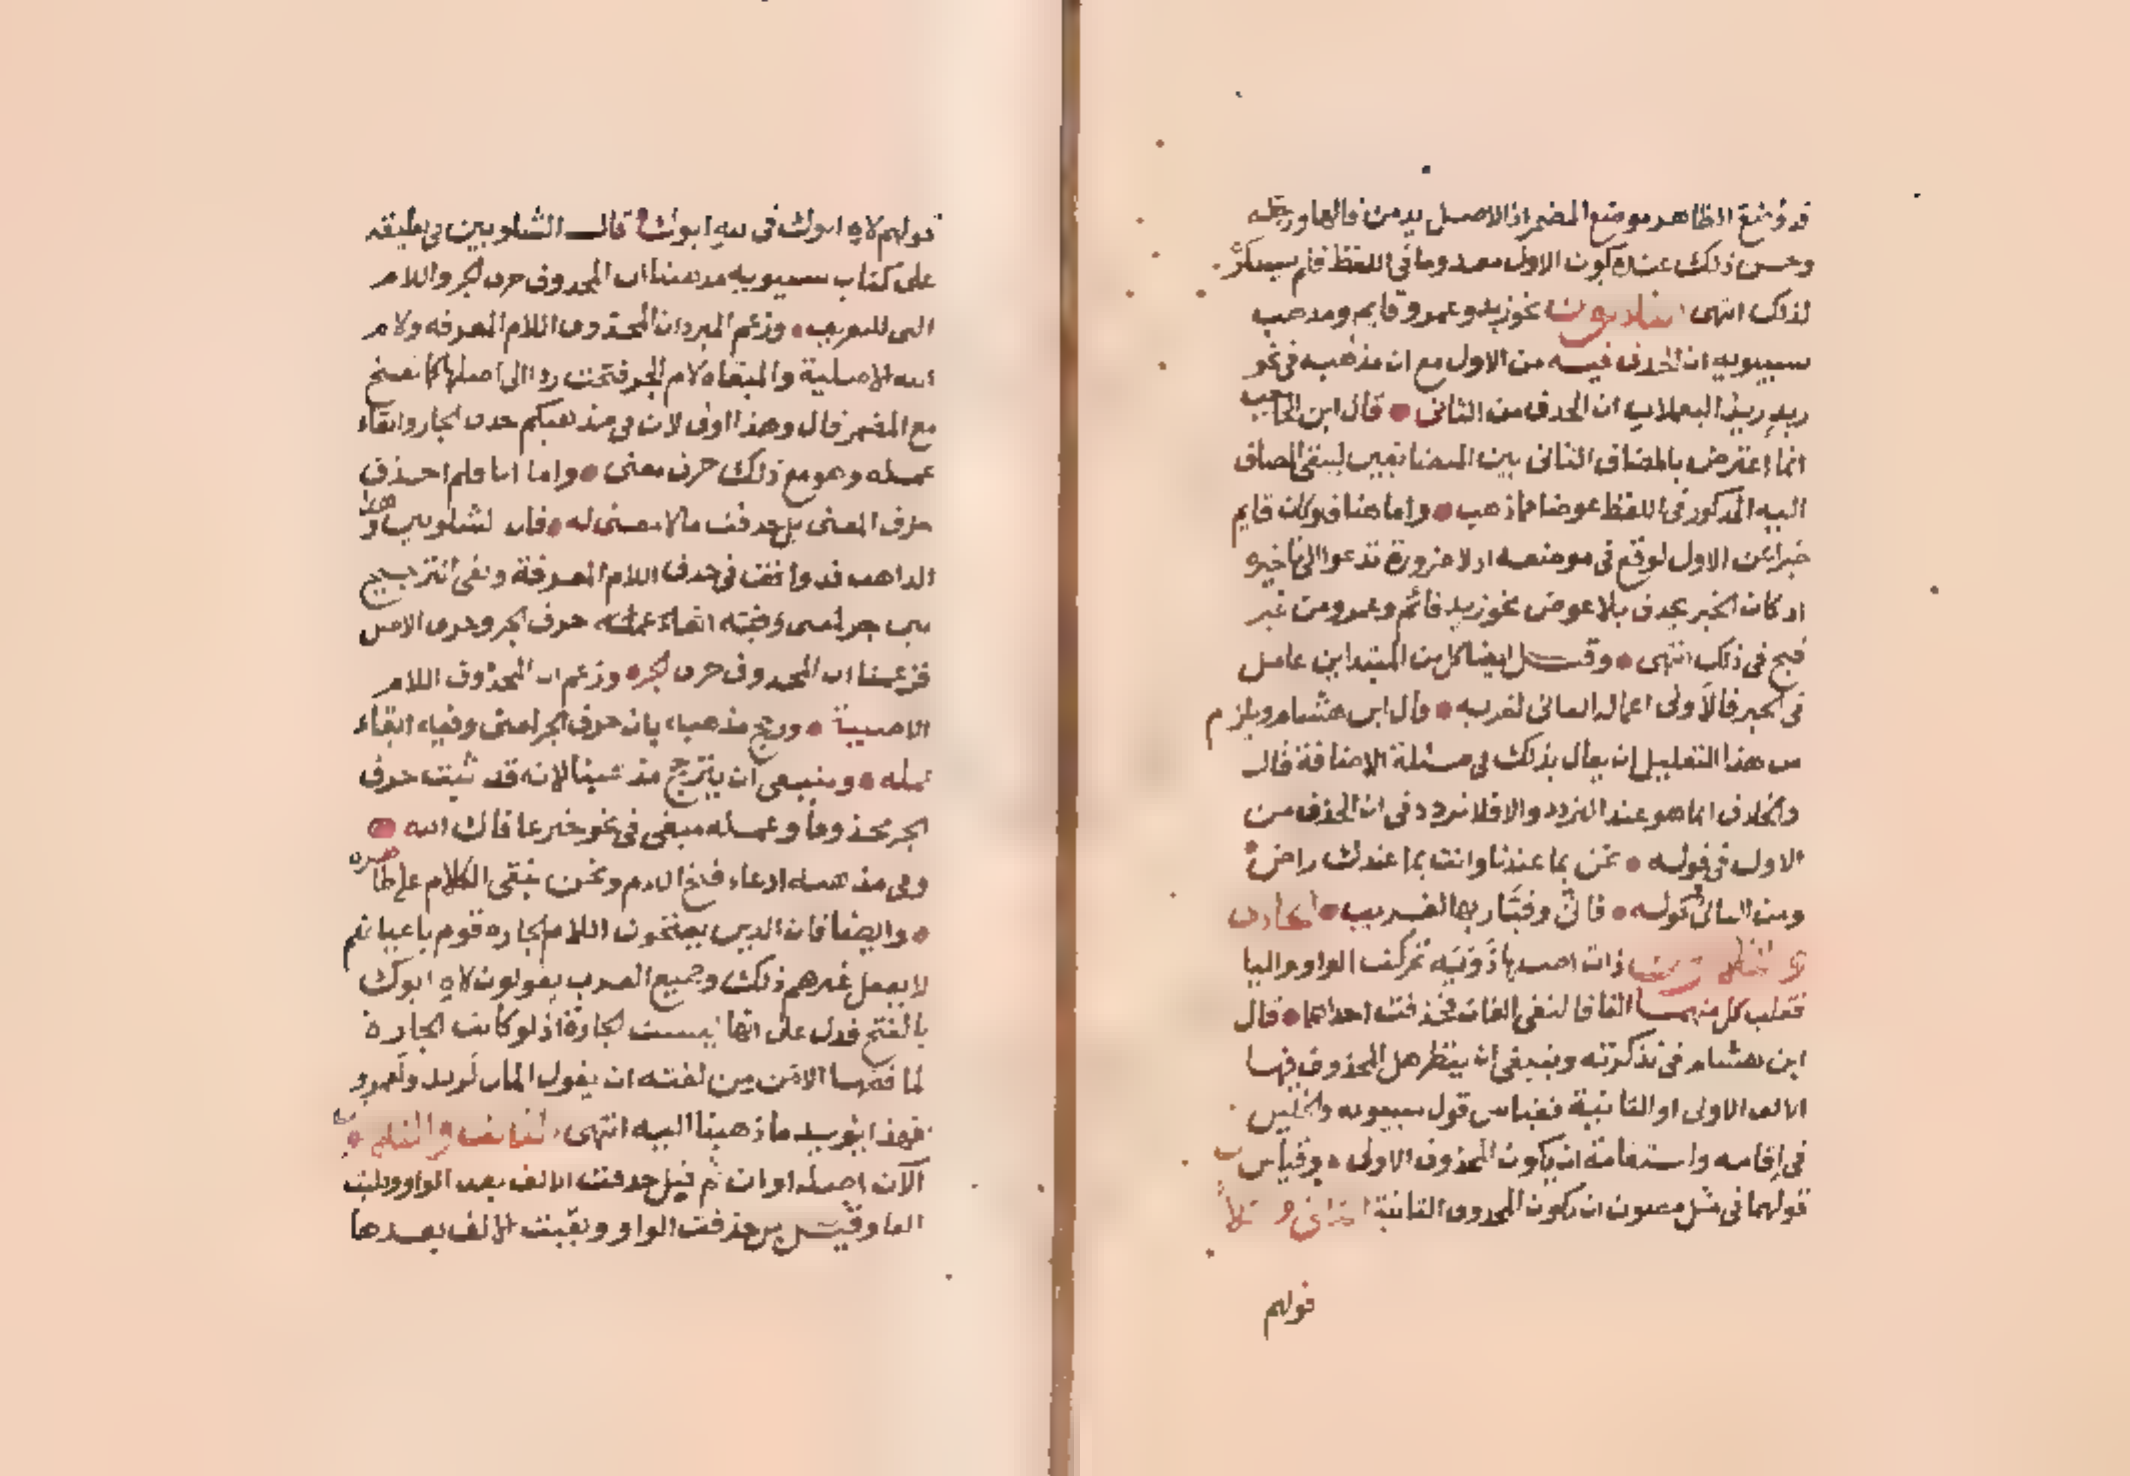 قد وضع الظاهر موضع المضمر اذ الاصل يد من قالها ورجله
وحسن ذلك عنده كون الاول معدوما في اللفظ فلم يستنكر
لذلك انتهى نحو زيد وعمرو قايم ومذهب
سيبويه ان الحذف فيه من الاول مع ان مذهبه في نحو
زيد زيد اليعملات ان الحذف من الثاني قال ابن الحاجب
انما اعترض بالمضاف الثاني بين المتضايفين ليبقى المضاف
اليه المذكور في اللفظ عوضا مما ذهب واما هنا فلو كان قايم
خبرا عن الاول لوقع في موضعه اذ لا ضرورة تدعوا الى تاخيره
اذ كان الخبر يحذف بلا عوض نحو زيد قائم وعمرو من غير
قبح في ذلك انتهى وقيل ايضا كل من المبتداين عامل
في الخبر فالاولى اعمال الثاني لقربه قال ابن هشام ويلزم
من هذا التعليل ان يقال بذلك في مسئلة الاضافة قال
والخلاف انما هو عند التردد والا فلا تردد في ان الحذف من
الاول في قوله نحن بما عندنا وانت بما عندك راض
ومن الثاني كقوله فاني وقيار بها لغريب
ذات اصلها ذوية تحركت الواو واليا
فقلب كل منهما الفا فالتقى الفات فحذفت احداهما قال
ابن هشام في تذكرته وينبغي ان ينظر هل المحذوف فيها
الالف الاولى او الثانية فقياس قول سيبويه والخليل
في اقامه واستقامة ان يكون المحذوف الاولى وقياس
قولهما في مثل مصون ان يكون المحذوف الثانية
قولهم
قولهم لاه ابوك في لله ابوك قال الشلوبين في تعليقه
على كتاب سيبويه مذهبنا ان المحذوف حرف الجر واللام
التي للتعريف وزعم المبرد ان المحذوف اللام المعرفه ولام
الله الاصلية والمبقاة لام الجر فتحت ردا الى اصلها كما تفتح
مع المضمر قال وهذا اولى لان في مذهبكم حذف الجار وابقاء
عمله وهو مع ذلك حرف معنى واما انا فلم احذف
حرف المعنى بل حذفت ما لا معنى له قال الشلوبين وهذا
الذاهب قد وافقت في حذف اللام المعرفة وبقى الترجيح
بين حرف الجر وحرف الاصل
فزعمنا ان المحذوف حرف الجر وزعم ان المحذوف اللام
الاصلية ورجح مذهبه بان حرف الجر لمعنى وفيه ابقاء
عمله وينبغي ان يترجح مذهبنا لانه قد ثبت حرف
الجر محذوفا وعمله مبقى في نحو خير عافاك الله
وفي مذهبه ادعاء فتح اللام ونحن نبقى الكلام على ظاهره
وايضا فان الذين يفتحون اللام الجاره قوم باعيانهم
لا يفعل غيرهم ذلك وجميع العرب يقولون لاه ابوك
بالفتح فدل على انها ليست الجارة اذ لو كانت الجارة
لما فتحها الا من لغته ان يقول المال لزيد ولعمرو
فهذا يويد ما ذهبنا اليه انتهى
الآن اصله اوان ثم قيل حذفت الالف بعد الواو وقلبت
الفا وقيل بل حذفت الواو وبقيت الالف بعدها